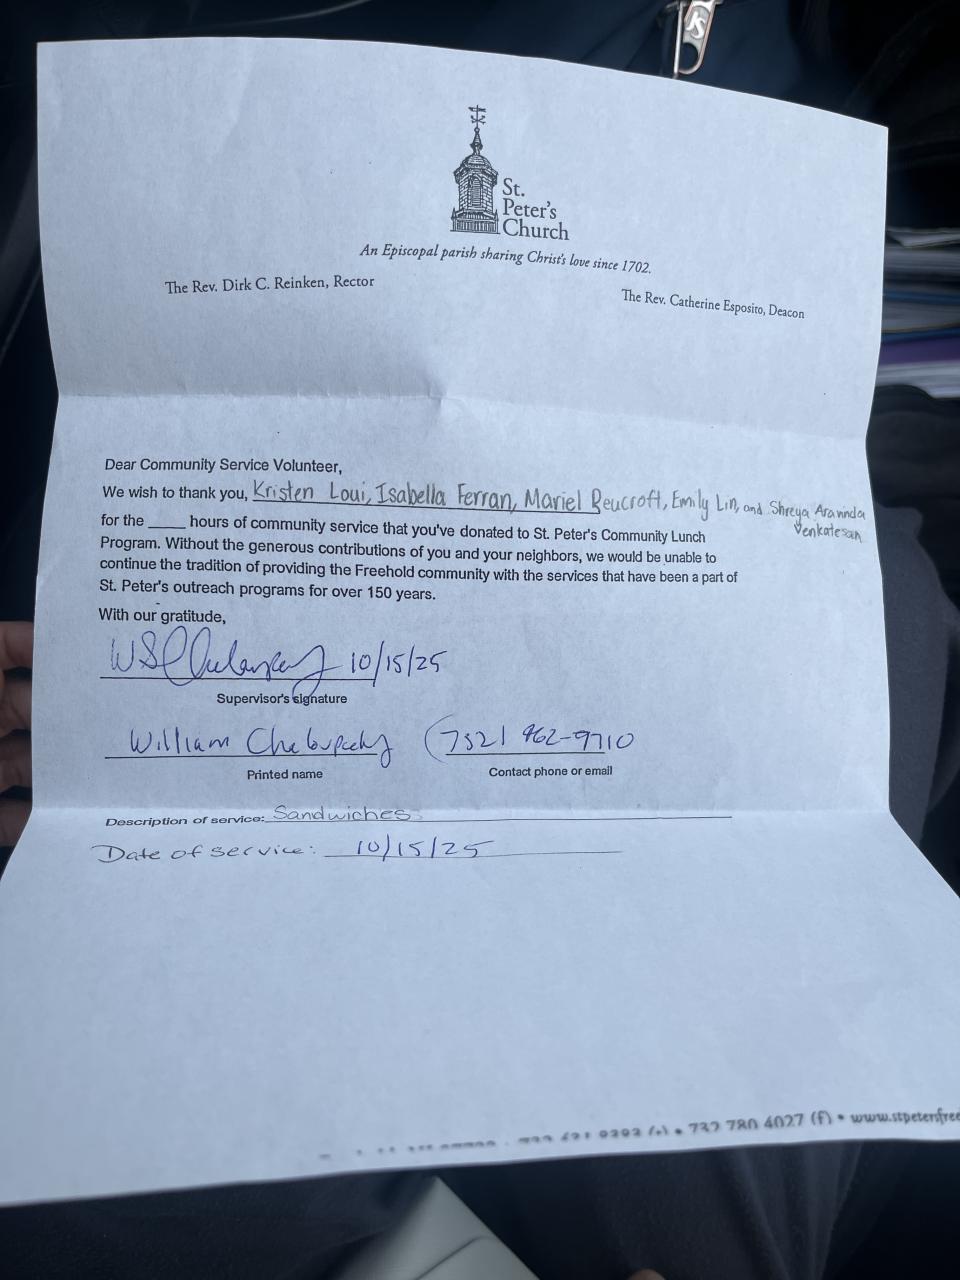 St.
Peter's
Church
An Episcopal parish sharing Christ's love since 1702.
The Rev. Dirk C. Reinken, Rector
The Rev. Catherine Esposito, Deacon
Dear Community Service Volunteer,
We wish to thank you, Kristen Loui, Isabella Ferran, Mariel Beucroft, Emily Lin, and Shreya Aravinda
Venkatesan
for the ____ hours of community service that you've donated to St. Peter's Community Lunch
Program. Without the generous contributions of you and your neighbors, we would be unable to
continue the tradition of providing the Freehold community with the services that have been a part of
St. Peter's outreach programs for over 150 years.
With our gratitude,
10/15/25
Supervisor's signature
William (732) 962-9710
Printed name Contact phone or email
Description of service: Sandwiches
Date of service: 10/15/25
732 780 4027 (f) •